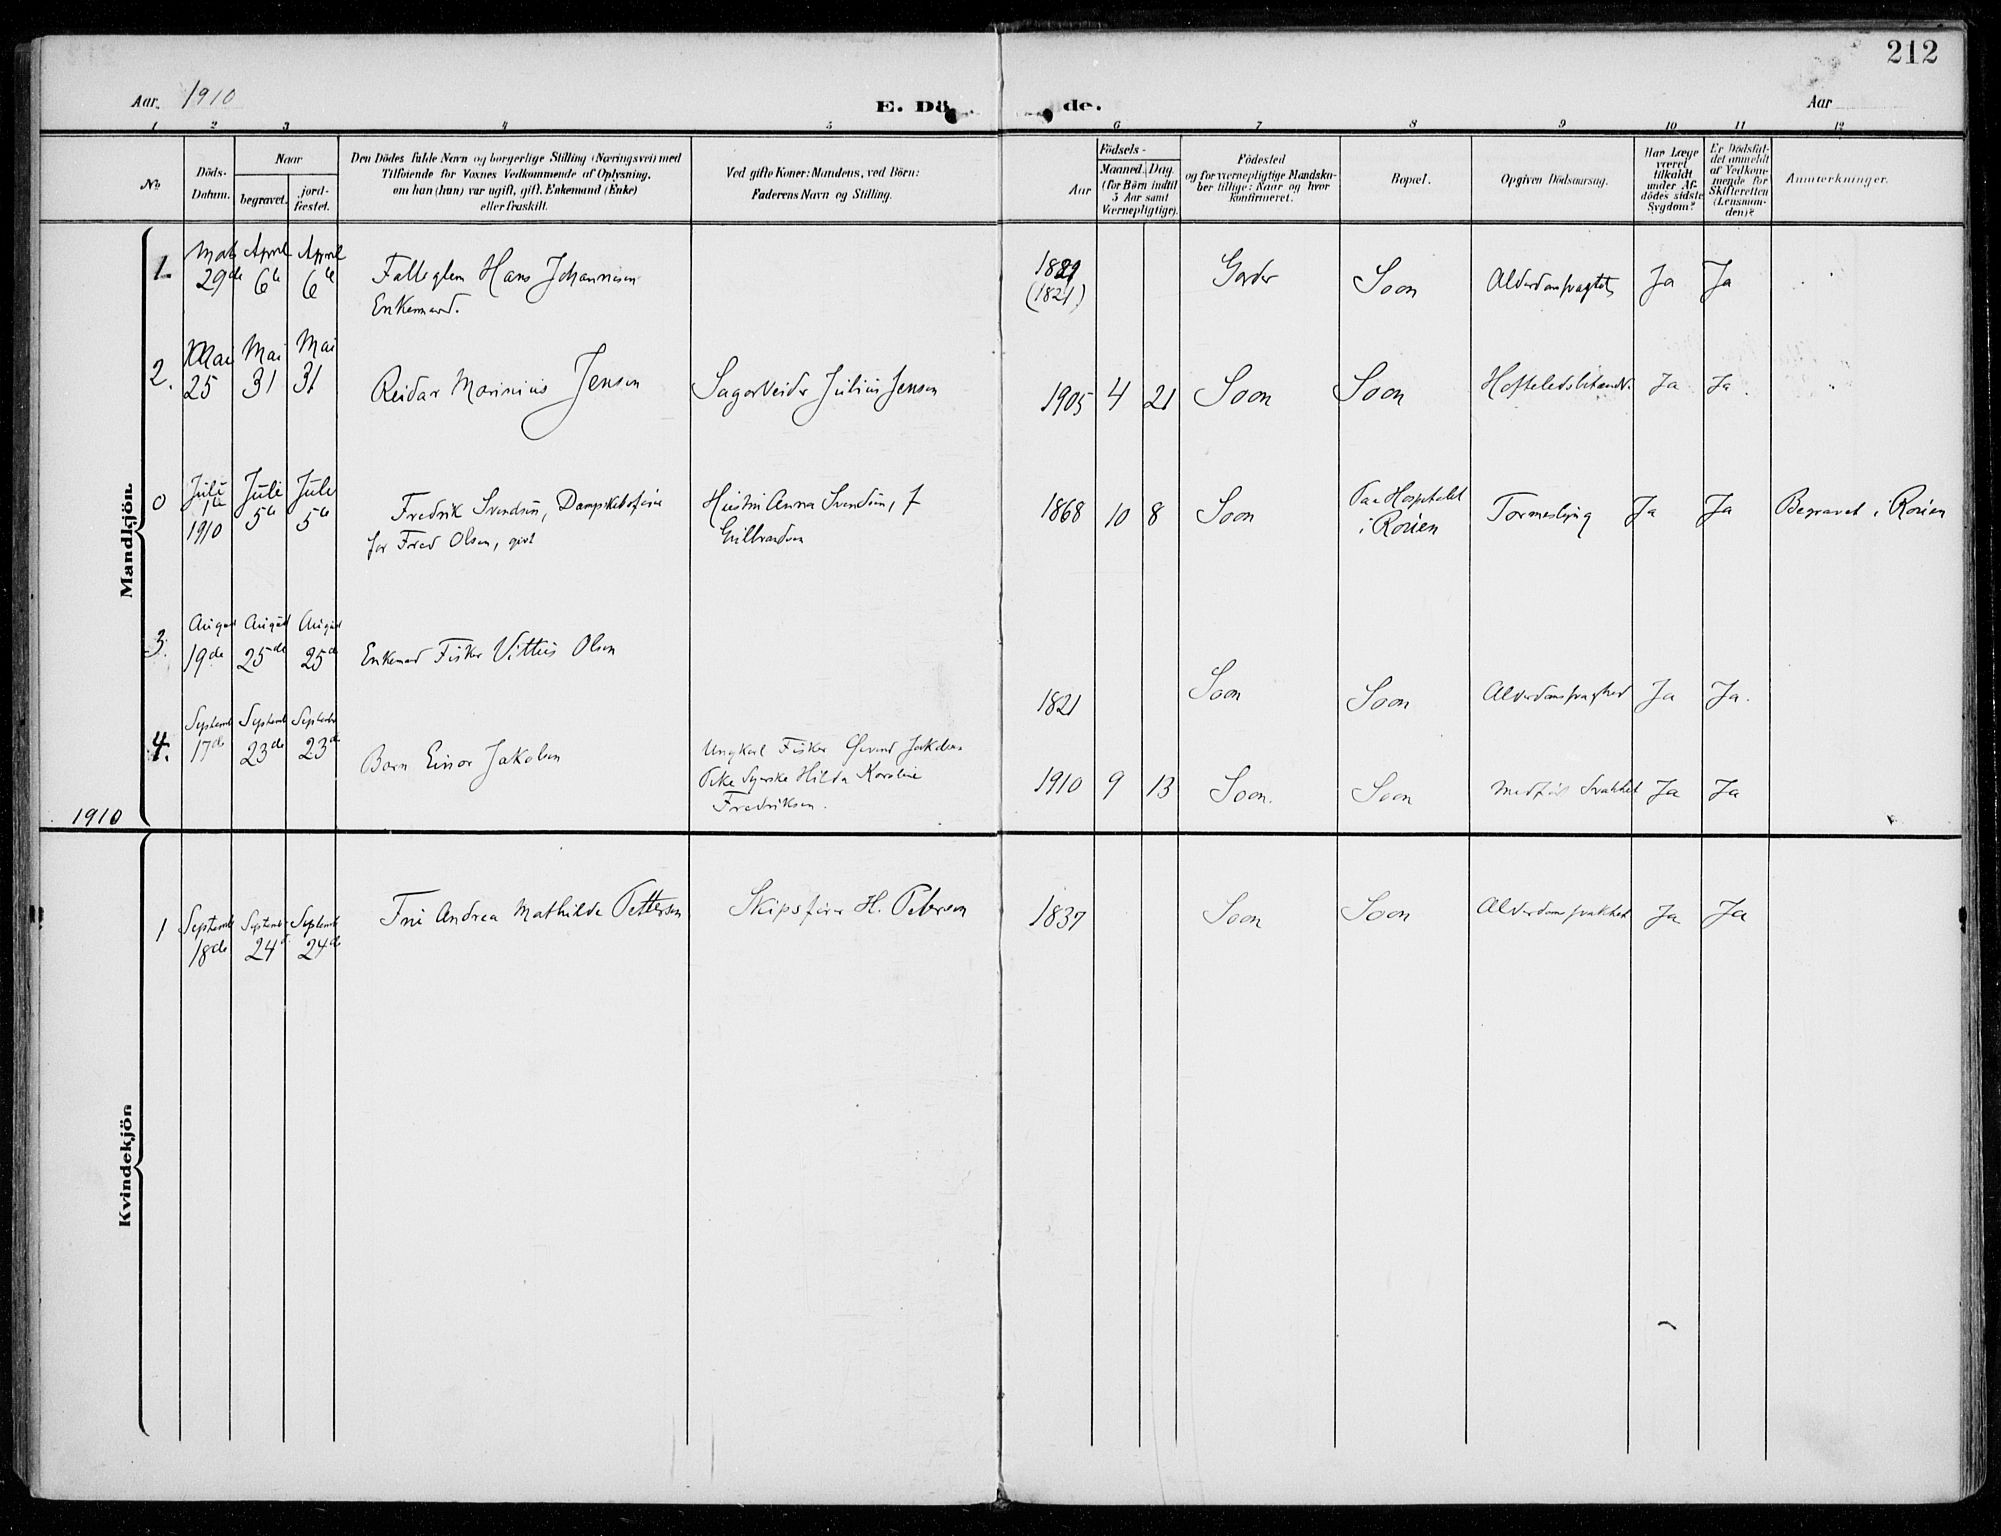 212
Aar. 1910
E. Dö de.
Aar
1 2 3 4 5 6 7 8 9 10 11 12
No
Döds-
Datum.
Naar
begravet.
jord-
fæstet.
Den Dödes fulde Navn og borgerlige Stilling (Næringsvei) med
Tilföiende for Voxnes Vedkommende af Oplysning,
om han (hun) var ugift, gift, Enkemand (Enke)
eller fraskilt.
Ved gifte Koner: Mandens, ved Börn:
Faderens Navn og Stilling.
Aar
Födsels-
Maaned. Dag.
(for Børn indtil
5 Aar samt
Værnepligtige).
Födested
og for værnepligtige Mandska-
ber tillige: Naar og hvor
konfirmeret.
Bopæl.
Opgiven Dödsaarsag.
Har Læge
været
tilkaldt
under Af-
dödes sidste
Sygdom?
Er Dödsfal-
det anmeldt
af Vedkom-
mende for
Skifteretten
(Lensman-
den)?
Anmerkninger.
Mandkjön.
1. 29de April 6te April 6te
Hans Johannesen
Enkemand.
(1821)
Soon
Ja Ja
2. Mai 25 Mai 31 Mai 31
Reidar Marinius Jensen
Julius Jensen
1905 4 21 Soon Soon
Ja Ja.
0 Juli 1ste 1910 Juli 5te Juli 5te
Fredrik Svendsen,
for Fred Olsen, gift
Hustru Anna Svendsen, f
1868 10 8 Soon
Paa Hospitalet
i Röien
Ja Ja
Begravet i Röien
3. August 19de August 25de August 25de
Enkemand Fisker Vittus Olsen
1821 Soon Soon Alderdomssvaghed Ja Ja.
4. September 17de September 23de September 23de
Barn Einar Jakobsen
Ungkarl Fisker Øivind Jakobsen
Pike Syerske Hilda Karoline
Fredriksen.
1910 9 13 Soon. Soon Medfödt Svakhet Ja Ja
1910
Kvindekjön
1 September 18de September 24de September 24de
Fru Andrea Mathilde Pettersen
Skipsfører H. Petersen
1837 Soon Soon Alderdomssvakhet Ja Ja